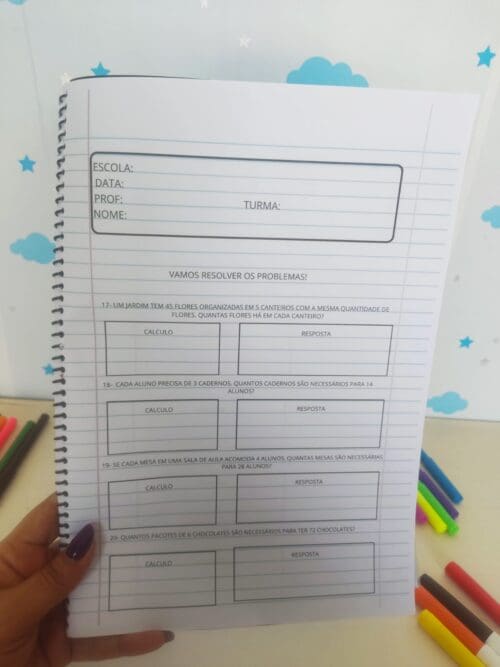 ESCOLA:
DATA:
PROF: TURMA:
NOME:
VAMOS RESOLVER OS PROBLEMAS!
17- UM JARDIM TEM 45 FLORES ORGANIZADAS EM 5 CANTEIROS COM A MESMA QUANTIDADE DE
FLORES. QUANTAS FLORES HÁ EM CADA CANTEIRO?
CALCULO RESPOSTA
18- CADA ALUNO PRECISA DE 3 CADERNOS. QUANTOS CADERNOS SÃO NECESSÁRIOS PARA 14
ALUNOS?
CALCULO RESPOSTA
19- SE CADA MESA EM UMA SALA DE AULA ACOMODA 4 ALUNOS, QUANTAS MESAS SÃO NECESSÁRIAS
PARA 28 ALUNOS?
CALCULO RESPOSTA
20- QUANTOS PACOTES DE 6 CHOCOLATES SÃO NECESSÁRIOS PARA TER 72 CHOCOLATES?
CALCULO RESPOSTA